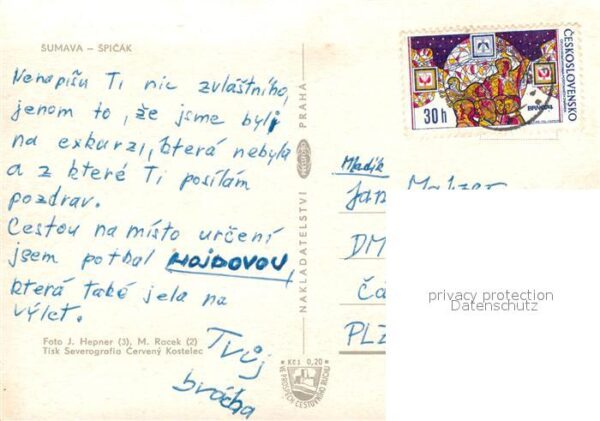 ŠUMAVA – ŠPIČÁK
Nenapíšu Ti nic zvláštního,
jenom to, že jsme byli
na exkurzi, která nebyla
a z které Ti posílám
pozdrav.
Cestou na místo určení
jsem potkal HOJDOVOU,
která také jela na
výlet.
Tvůj
brácha
Foto J. Hepner (3), M. Racek (2)
Tisk Severografia Červený Kostelec
NAKLADATELSTVÍ
PRAHA
Kčs 0,20
VE PROSPĚCH CESTOVNÍHO RUCHU
ČESKOSLOVENSKO
30 h
Mladík
Jan
DM
PLZ
privacy protection
Datenschutz